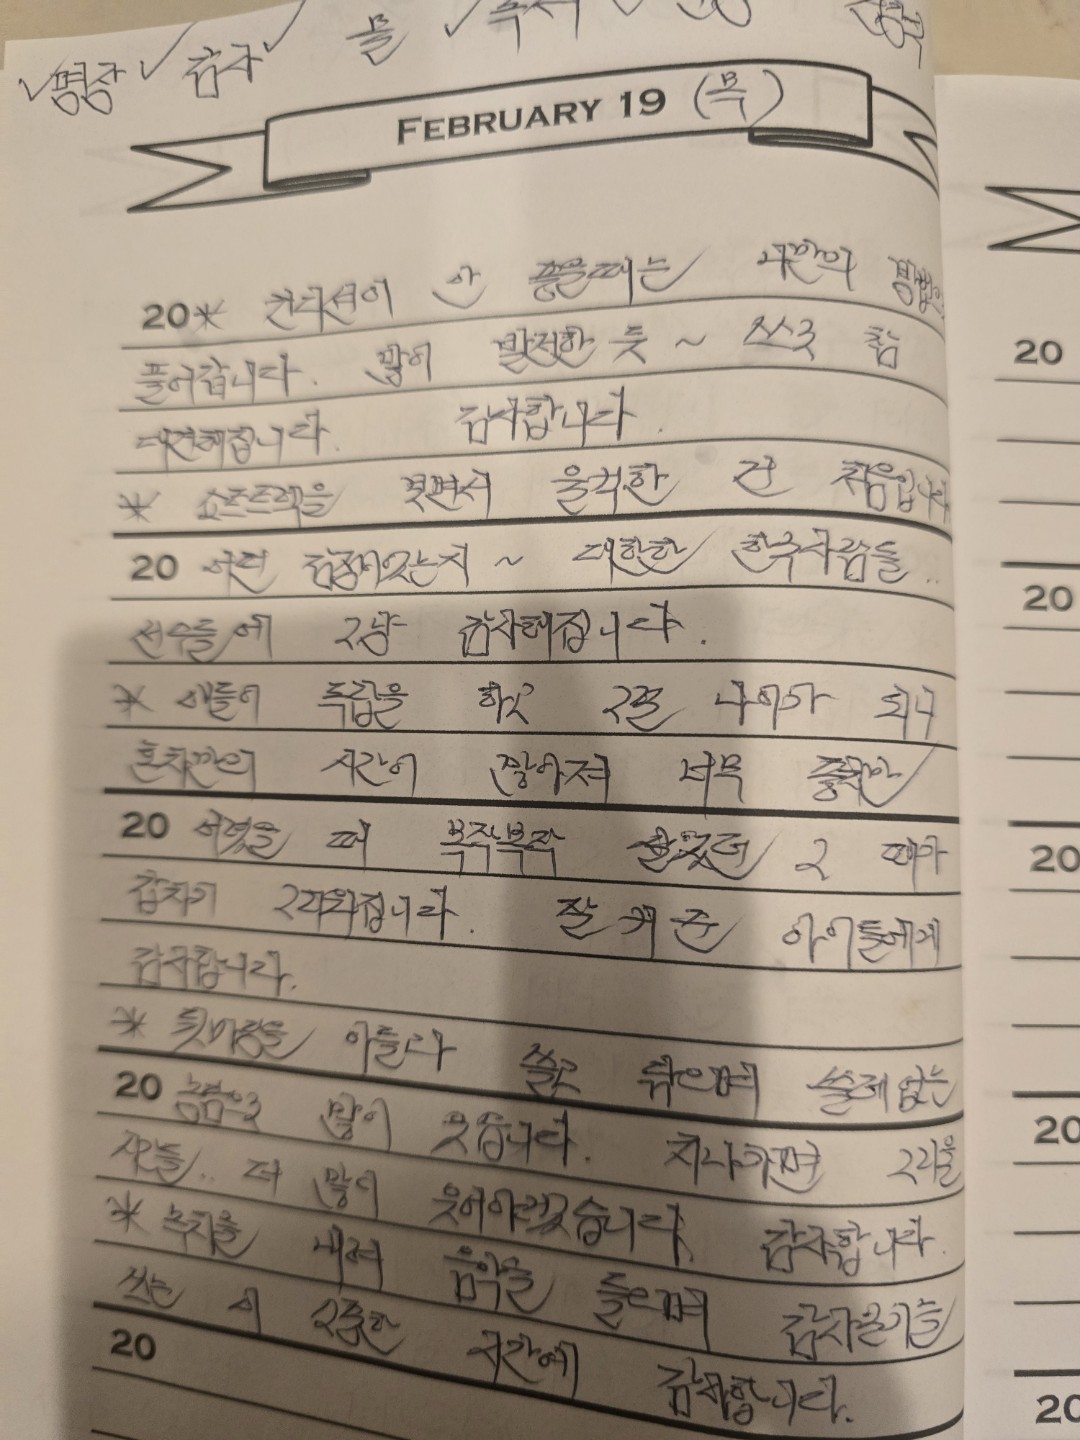 ✓명상 ✓감사 ✓물 ✓독서 ✓
FEBRUARY 19 (목)
20 * 컨디션이 안 좋을때는 나만의 방법으로
풀어갑니다. 많이 발전한 듯 ~ 쓰고 참
대견해집니다. 감사합니다.
* 쇼트트랙을 보면서 울컥한 건 처음입니다
20 어떤 감정이었는지 ~ 대한한 한국사람들..
선수들에 그냥 감사해집니다.
* 애들이 독립을 하고 2월 나이가 되니
혼자만의 시간이 많아져 너무 좋지만
20 어렸을 때 북적북적 살았던 그 때가
갑자기 그리워집니다. 잘 커 준 아이들에게
감사합니다.
* 윷마당을 아들과 쓸고 닦으며 쓸데없는
20 농담으로 많이 웃습니다. 지나가면 그리울
시간들.. 더 많이 웃어야겠습니다. 감사합니다.
* 녹차를 내려 음악을 들으며 감사일기를
쓰는 이 고요한 시간에 감사합니다.
20
20
20
20
20
20